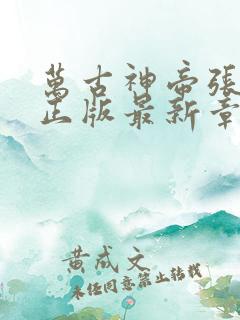 萬古神帝張
正版最新章
黄成文
未经同意禁止转载